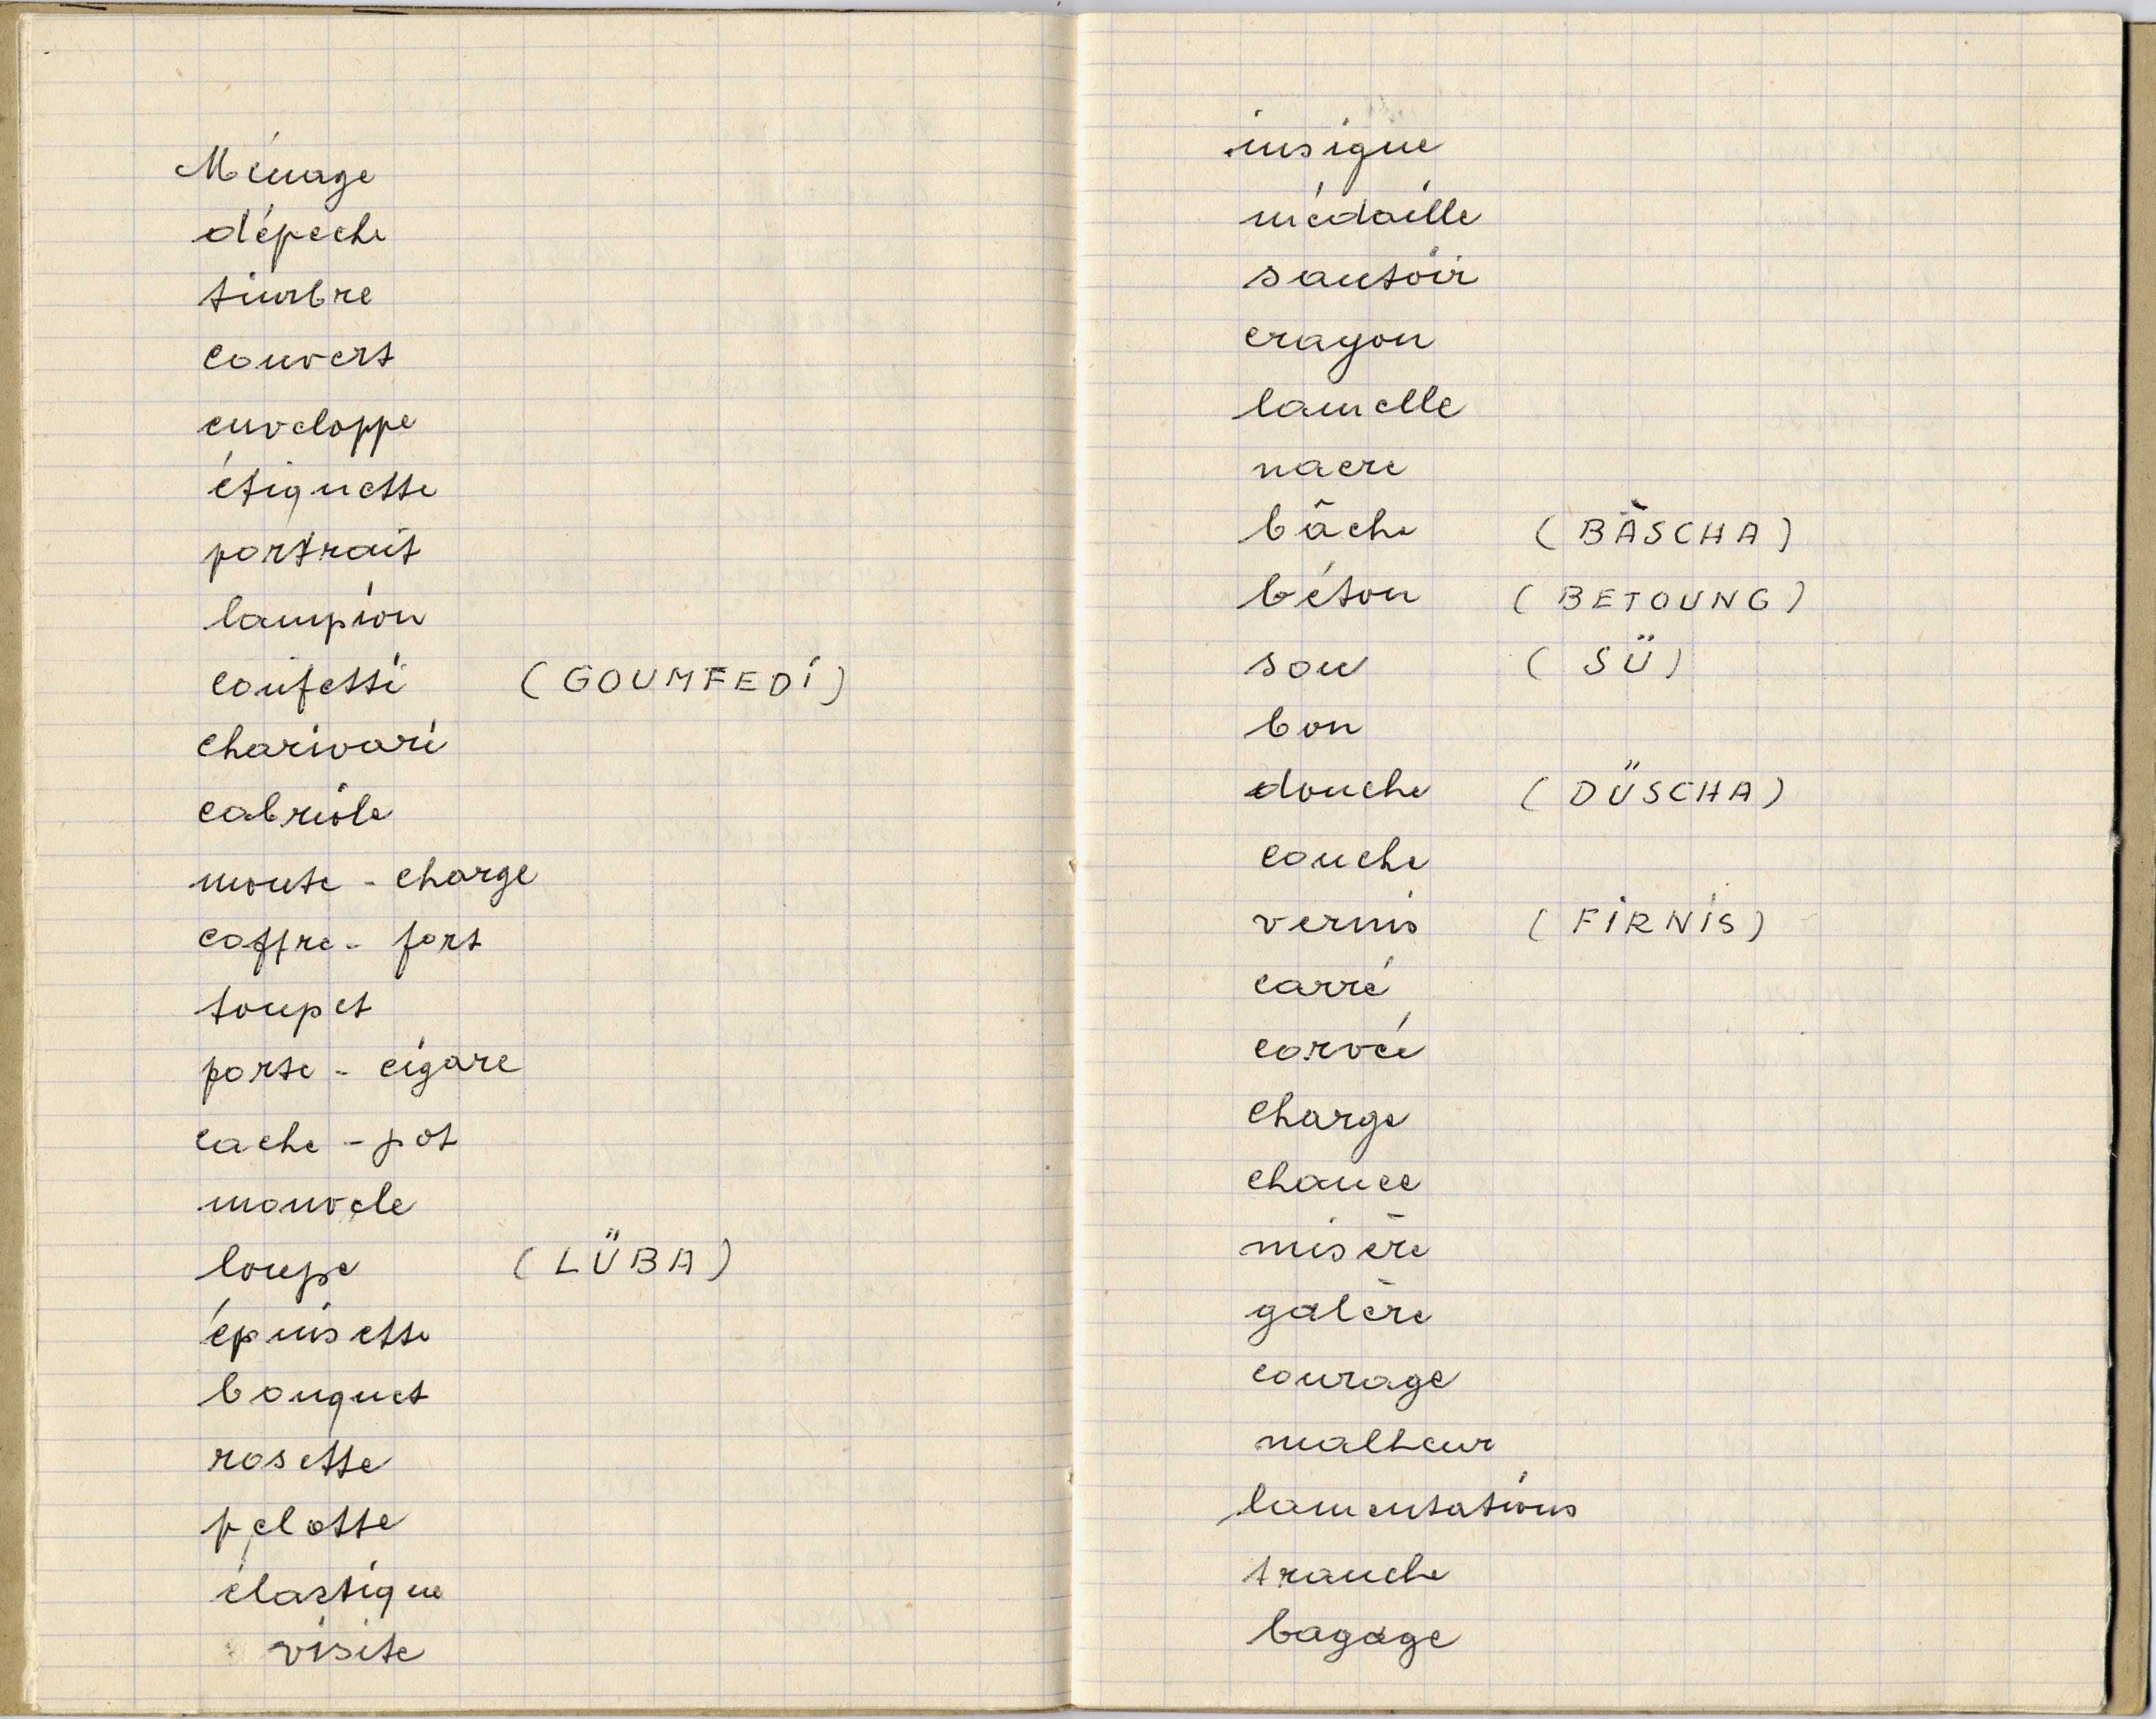 Ménage
dépeche
timbre
couvert
enveloppe
étiquette
portrait
lampion
confetti (GOUMFEDI)
charivari
cabriole
monte - charge
coffre - fort
toupet
porte - cigare
cache - pot
monocle
loupe (LÜBA)
épuisette
bouquet
rosette
pelotte
élastique
visite
insigne
médaille
sautoir
crayon
lamelle
nacre
bâche (BÄSCHA)
béton (BETOUNG)
sou (SÜ)
bon
douche (DÜSCHA)
couche
vernis (FIRNIS)
carré
corvée
charge
chance
misère
galère
courage
malheur
lamentations
tranche
bagage